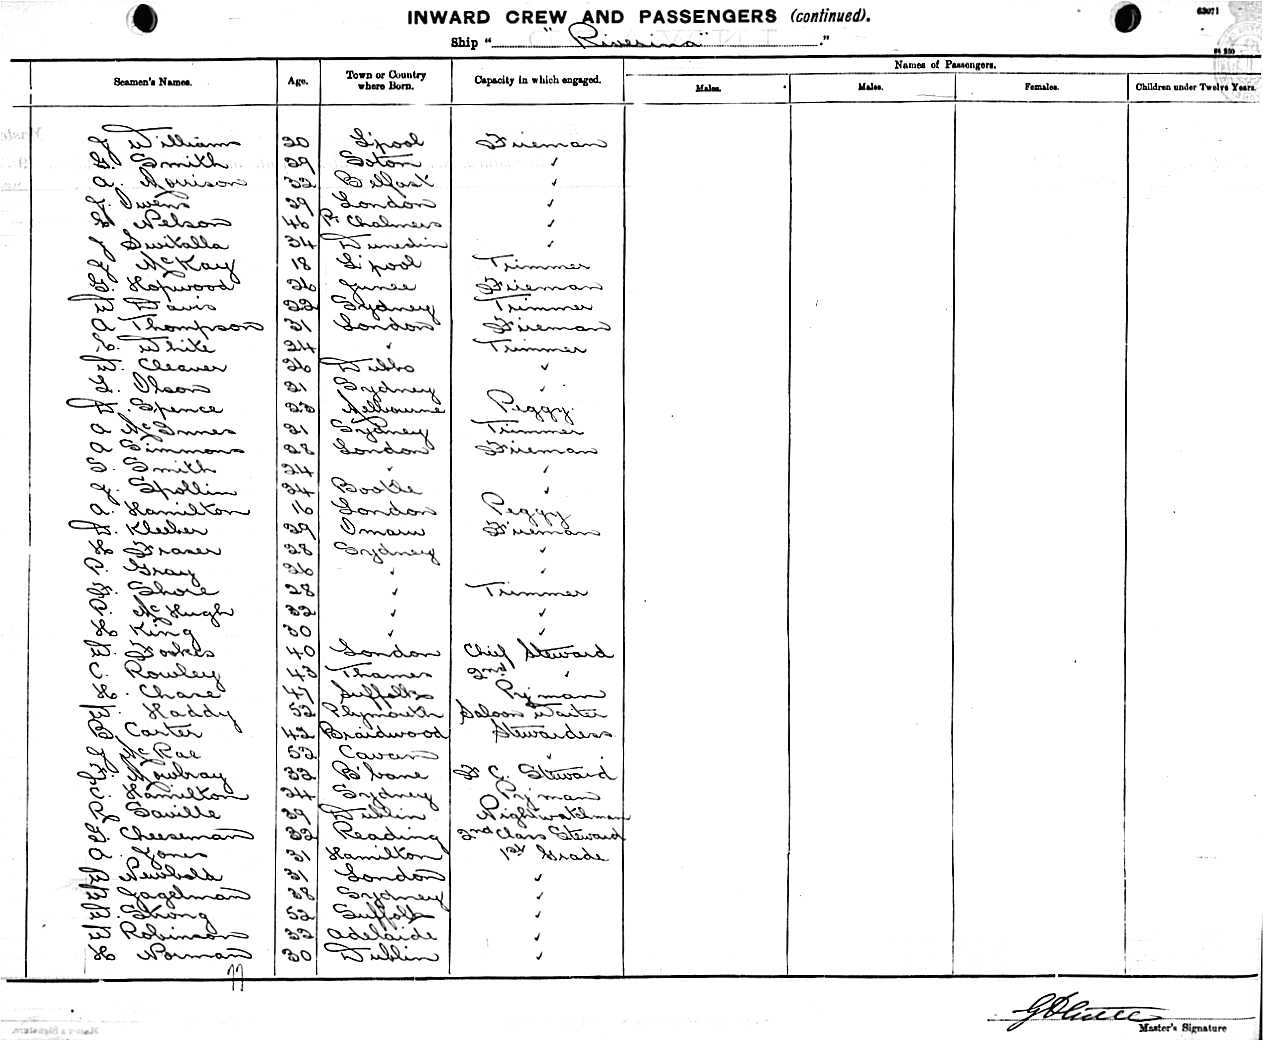 INWARD CREW AND PASSENGERS (continued).
63071
Ship " "Riverina" "
Names of Passengers.
Seamen's Names. Age. Town or Country where Born. Capacity in which engaged. Males. Males. Females. Children under Twelve Years.
J Williams 20 L'pool Fireman
Smith 29 Soton ✓
A. Morrison 32 Belfast ✓
J. Owens 29 London ✓
Nelson 46 Pt Chalmers ✓
Switalla 34 Dunedin ✓
J McKay 18 L'pool Trimmer
Hopwood 26 Junee Fireman
W Davis 22 Sydney Trimmer
A Thompson 31 London Fireman
White 24 " Trimmer
W. Cleaver 26 Dubbo ✓
Olson 21 Sydney ✓
W. Spence 23 Melbourne Peggy.
A McInnes 21 Sydney Trimmer
A Simmons 28 London Fireman
S. Smith 24 " ✓
J. Spollin 34 Bootle ✓
A. Hamilton 16 London Peggy
W. Kleeber 29 Omaru Fireman
H Fraser 28 Sydney ✓
Gray 26 ✓ ✓
Shore 28 ✓ Trimmer
McHugh 32 ✓ ✓
H King 30 ✓ ✓
Fookes 40 London Chief Steward
C. Rowley 43 Thames 2nd "
H. Chase 47 Suffolk P'yman
Haddy 52 Plymouth Saloon Waiter
Carter 42 Braidwood Stewardess
McRae 52 Cavan ✓
Mowbray 32 B'bane F C. Steward
Hamilton 24 Sydney P'yman
Saville 39 Dublin Nightwatchman
Cheeseman 32 Reading 2nd Class Steward
A. Jones 31 Hamilton 1st Grade
Newbold 31 London ✓
Gagelman 38 Sydney ✓
Strong 52 Suffolk ✓
Robinson 32 Adelaide ✓
H Norman 30 Dublin ✓
77
Master's Signature